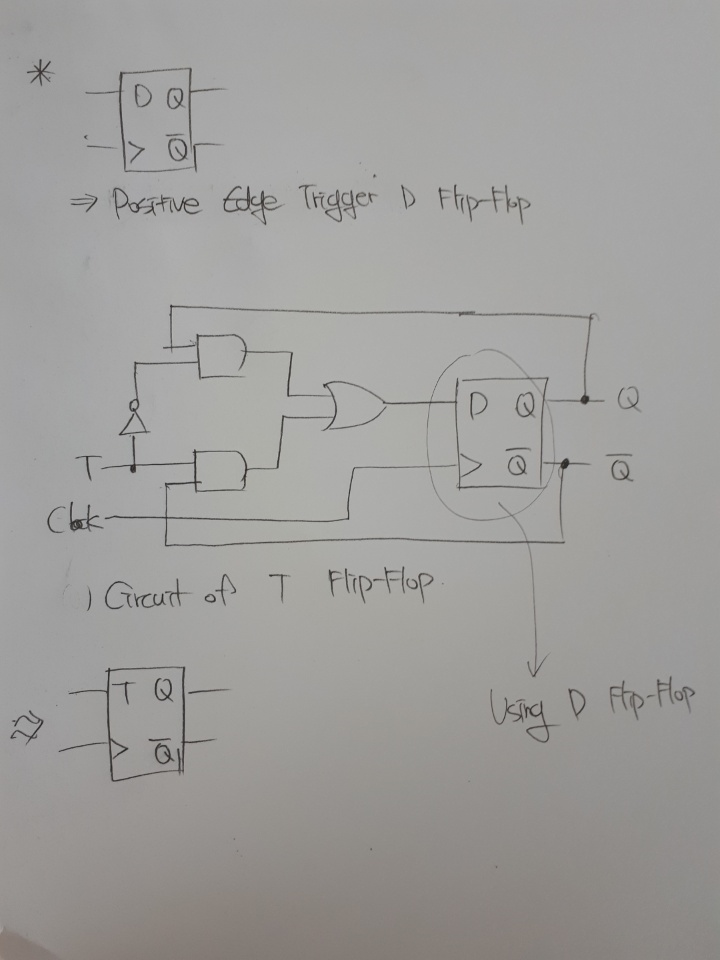 * D Q
> Q̅
⇒ Positive Edge Trigger D Flip-Flop
D Q Q
T Q̅ Q̅
Clock
) Circuit of T Flip-Flop.
T Q
Q̅
Using D Flip-Flop